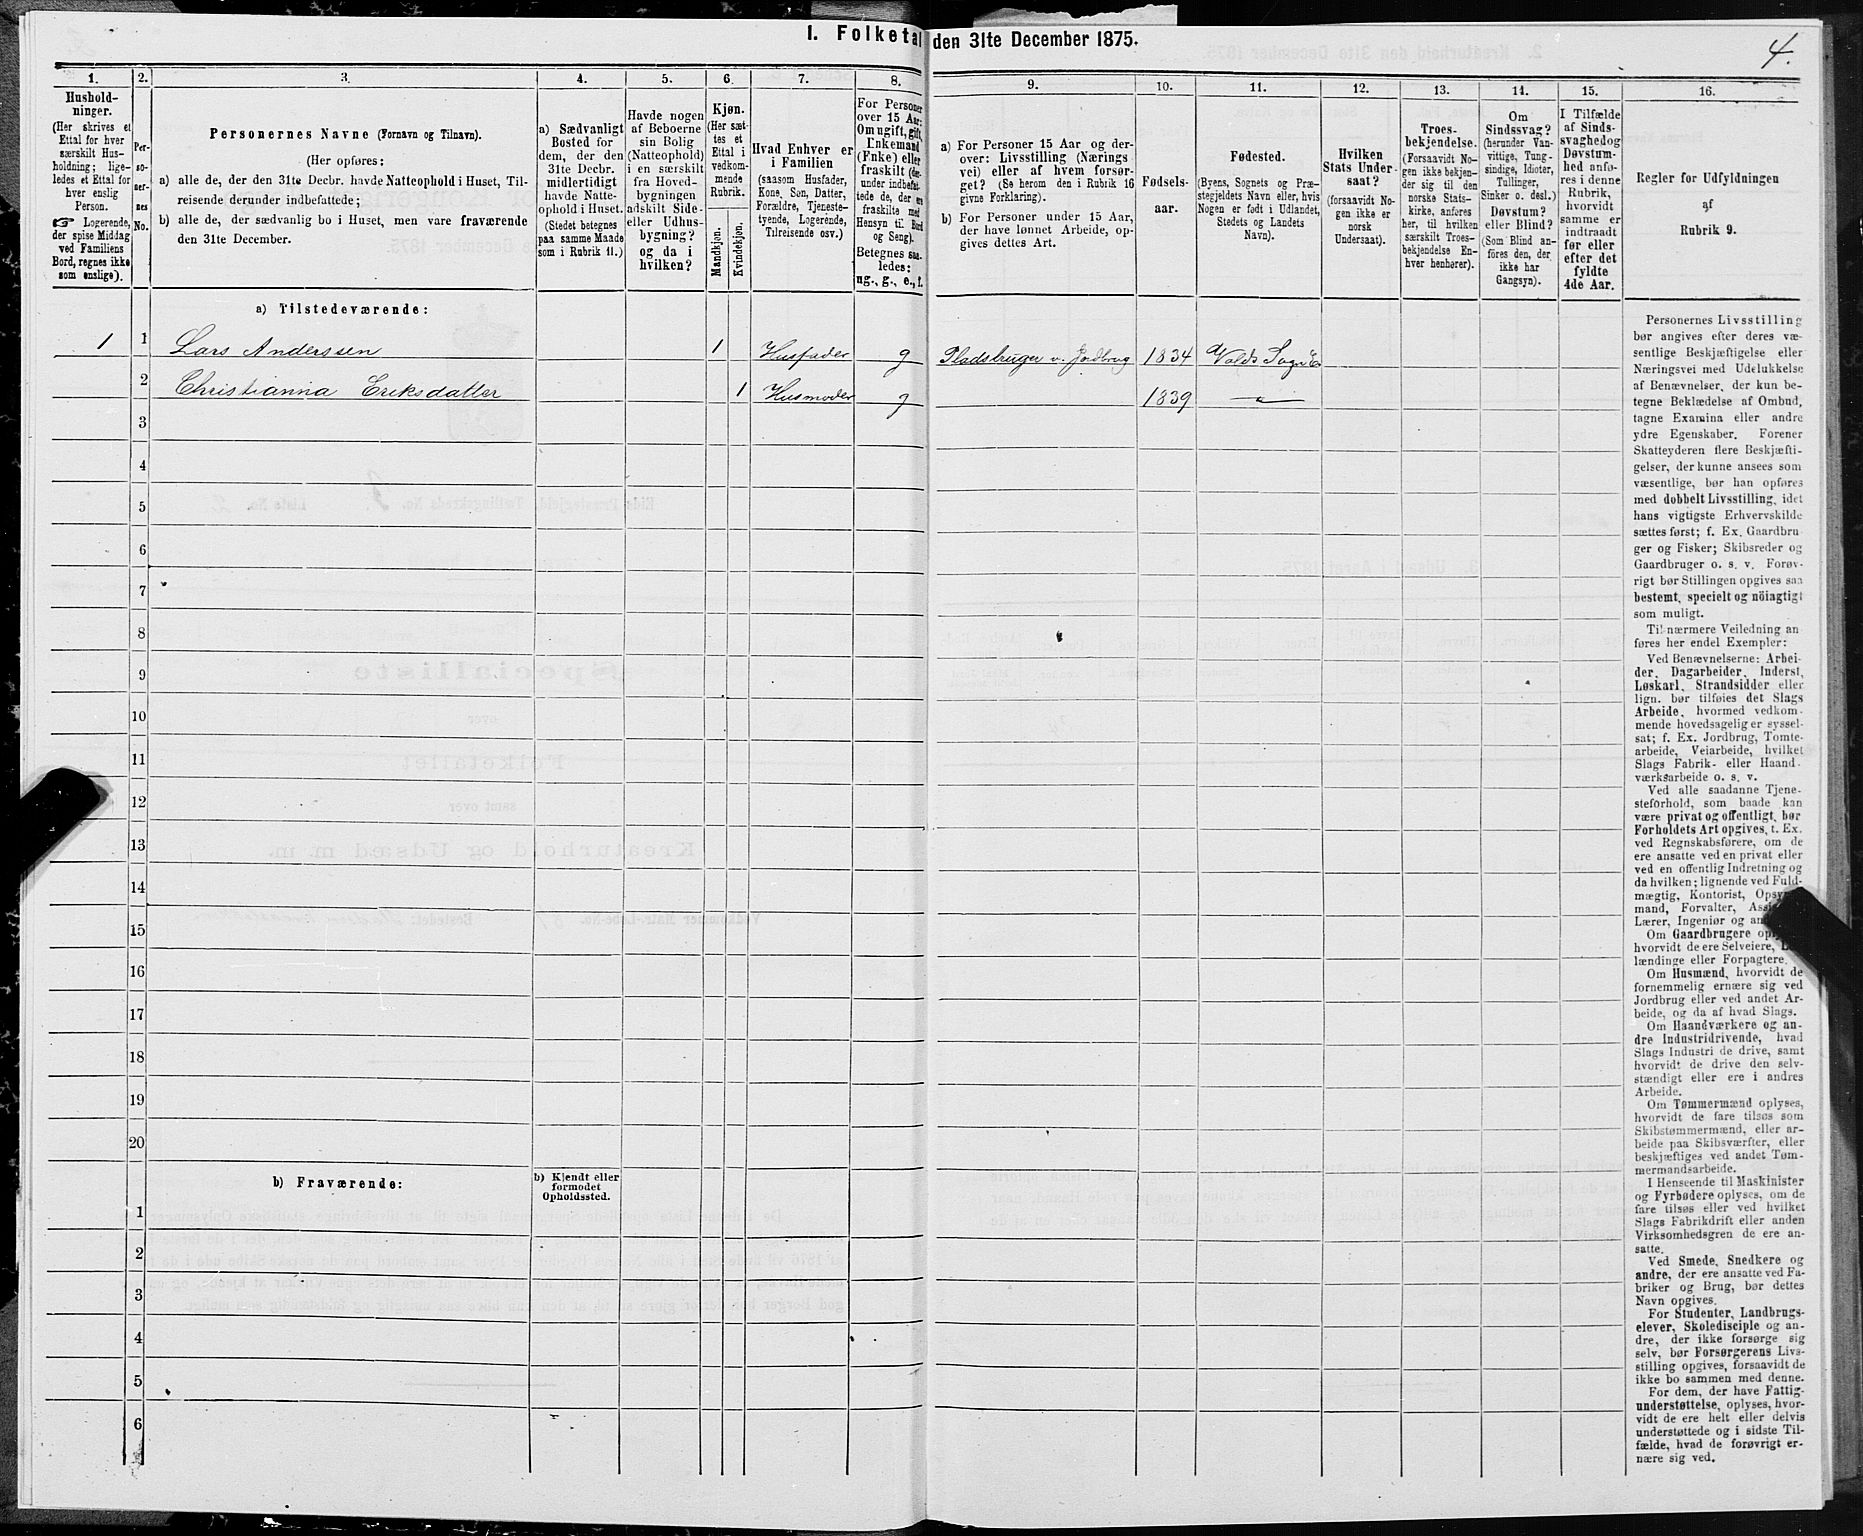 I. Folketal den 31te December 1875.
4.
1.
Hushold-
ninger.
(Her skrives et
Ettal for hver
særskilt Hus-
holdning; lige-
ledes et Ettal for
hver enslig
Person.
☞ Logerende,
der spise Middag
ved Familiens
Bord, regnes ikke
som enslige).
2.
Per-
so-
ner-
nes
No.
3.
Personernes Navne (Fornavn og Tilnavn).
(Her opføres:
a) alle de, der den 31te Decbr. havde Natteophold i Huset, Til-
reisende derunder indbefattede;
b) alle de, der sædvanlig bo i Huset, men vare fraværende
den 31te December.
4.
a) Sædvanligt
Bosted for
dem, der den
31te Decbr.
midlertidigt
havde Natte-
ophold i Huset.
(Stedet betegnes
paa samme Maade
som i Rubrik 11.)
5.
Havde nogen
af Beboerne
sin Bolig
(Natteophold)
i en særskilt
fra Hoved-
bygningen
adskilt Side-
eller Udhus-
bygning?
og da i
hvilken?
6.
Kjøn.
(Her sæt-
tes et
Ettal i
vedkom-
mende
Rubrik.
Mandkjøn.
Kvindekjøn.
7.
Hvad Enhver er
i Familien
(saasom Husfader,
Kone, Søn, Datter,
Forældre, Tjeneste-
tyende, Logerende,
Tilreisende osv.)
8.
For Personer
over 15 Aar:
Om ugift, gift,
Enkemand
(Enke) eller
fraskilt (der-
under indbefat-
tede de, der ere
fraskilte med
Hensyn til Bord
og Seng).
Betegnes saa-
ledes:
ug., g., e., f.
9.
a) For Personer 15 Aar og der-
over: Livsstilling (Nærings
vei) eller af hvem forsør-
get? (Se herom den i Rubrik 16
givne Forklaring).
b) For Personer under 15 Aar,
der have lønnet Arbeide, op-
gives dettes Art.
10.
Fødsels-
aar.
11.
Fødested.
(Byens, Sognets og Præ-
stegjeldets Navn eller, hvis
Nogen er født i Udlandet,
Stedets og Landets
Navn).
12.
Hvilken
Stats Under-
saat?
(forsaavidt No-
gen ikke er
norsk
Undersaat).
13.
Troes-
bekjendelse.
(Forsaavidt No-
gen ikke bekjen-
der sig til den
norske Stats-
kirke, anføres
her, til hvilken
særskilt Troes-
bekjendelse En-
hver henhører).
14.
Om
Sindssvag?
(herunder Van-
vittige, Tung-
sindige, Idioter,
Tullinger,
Sinker o. desl.)
Døvstum?
eller Blind?
(Som Blind an-
føres den, der
ikke har
Gangsyn).
15.
I Tilfælde
af Sinds-
svaghed og
Døvstum-
hed anfø-
res i denne
Rubrik,
hvorvidt
samme er
indtraadt
før eller
efter det
fyldte
4de Aar.
16.
Regler for Udfyldningen
af
Rubrik 9.
a) Tilstedeværende:
1 1 Lars Anderssen 1 Husfader g Pladsbruger v. Jordbrug 1834 Volds Sogn
2 Christianna Eriksdatter 1 Husmoder g 1839 —"—
3
4
5
6
7
8
9
10
11
12
13
14
15
16
17
18
19
20
b) Fraværende:
b) Kjendt eller
formodet
Opholdssted.
1
2
3
4
5
6
Personernes Livsstilling
bør angives efter deres væ-
sentlige Beskjæftigelse eller
Næringsvei med Udelukkelse
af Benævnelser, der kun be-
tegne Beklædelse af Ombud,
tagne Examina eller andre
ydre Egenskaber. Forener
Skatteyderen flere Beskjæfti-
gelser, der kunne ansees som
væsentlige, bør han opføres
med dobbelt Livsstilling, idet
hans vigtigste Erhvervskilde
sættes først; f. Ex. Gaardbru-
ger og Fisker; Skibsreder og
Gaardbruger o. s. v. Forøv-
rigt bør Stillingen opgives saa
bestemt, specielt og nöiagtigt
som muligt.
Til nærmere Veiledning an
føres her endel Exempler:
Ved Benævnelserne: Arbei-
der, Dagarbeider, Inderst,
Løskarl, Strandsidder eller
lign. bør tilføies det Slags
Arbeide, hvormed vedkom-
mende hovedsagelig er syssel-
sat; f. Ex. Jordbrug, Tomte-
arbeide, Veiarbeide, hvilket
Slags Fabrik- eller Haand-
værksarbeide o. s. v.
Ved alle saadanne Tjene-
steforhold, som baade kan
være privat og offentligt, bør
Forholdets Art opgives, t. Ex.
ved Regnskabsførere, om de
ere ansatte ved en privat eller
ved en offentlig Indretning og
da hvilken; lignende ved Fuld-
mægtig, Kontorist,
mand, Forvalter,
Lærer, Ingeniør og
Om Gaardbrugere
hvorvidt de ere Selveiere,
lændinge eller Forpagtere.
Om Husmænd, hvorvidt de
fornemmelig ernære sig ved
Jordbrug eller ved andet Ar-
beide, og da af hvad Slags.
Om Haandværkere og an-
dre Industridrivende, hvad
Slags Industri de drive, samt
hvorvidt de drive den selv-
stændigt eller ere i andres
Arbeide.
Om Tømmermænd oplyses,
hvorvidt de fare tilsøs som
Skibstømmermænd, eller ar-
beide paa Skibsværfter, eller
beskjæftiges ved andet Tøm-
mermandsarbeide.
I Henseende til Maskinister
og Fyrbødere oplyses, om de
fare tilsøs eller ved hvilket
Slags Fabrikdrift eller anden
Virksomhedsgren de ere an-
satte.
Ved Smede, Snedkere og
andre, der ere ansatte ved Fa-
briker og Brug, bør dettes
Navn opgives.
For Studenter, Landbrugs-
elever, Skoledisciple og an-
dre, der ikke forsørge sig
selv, bør Forsørgerens Livs-
stilling opgives, forsaavidt de
ikke bo sammen med denne.
For dem, der have Fattig-
understøttelse, oplyses, hvor-
vidt de ere helt eller delvis
understøttede og i sidste Til-
fælde, hvad de forøvrigt er-
nære sig ved.